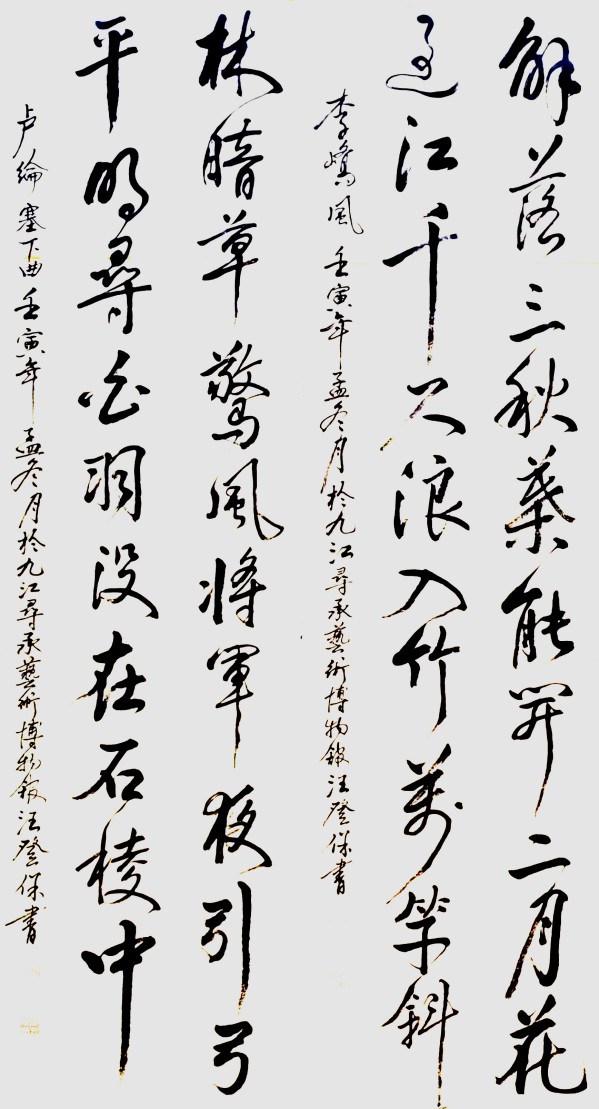 解落三秋葉能開二月花
過江千尺浪入竹萬竿斜
李嶠風 壬寅年孟冬月於九江尋承藝術博物館汪登保書
林暗草驚風將軍夜引弓
平明尋白羽没在石棱中
卢綸塞下曲壬寅年孟冬月於九江尋承藝術博物館汪登保書